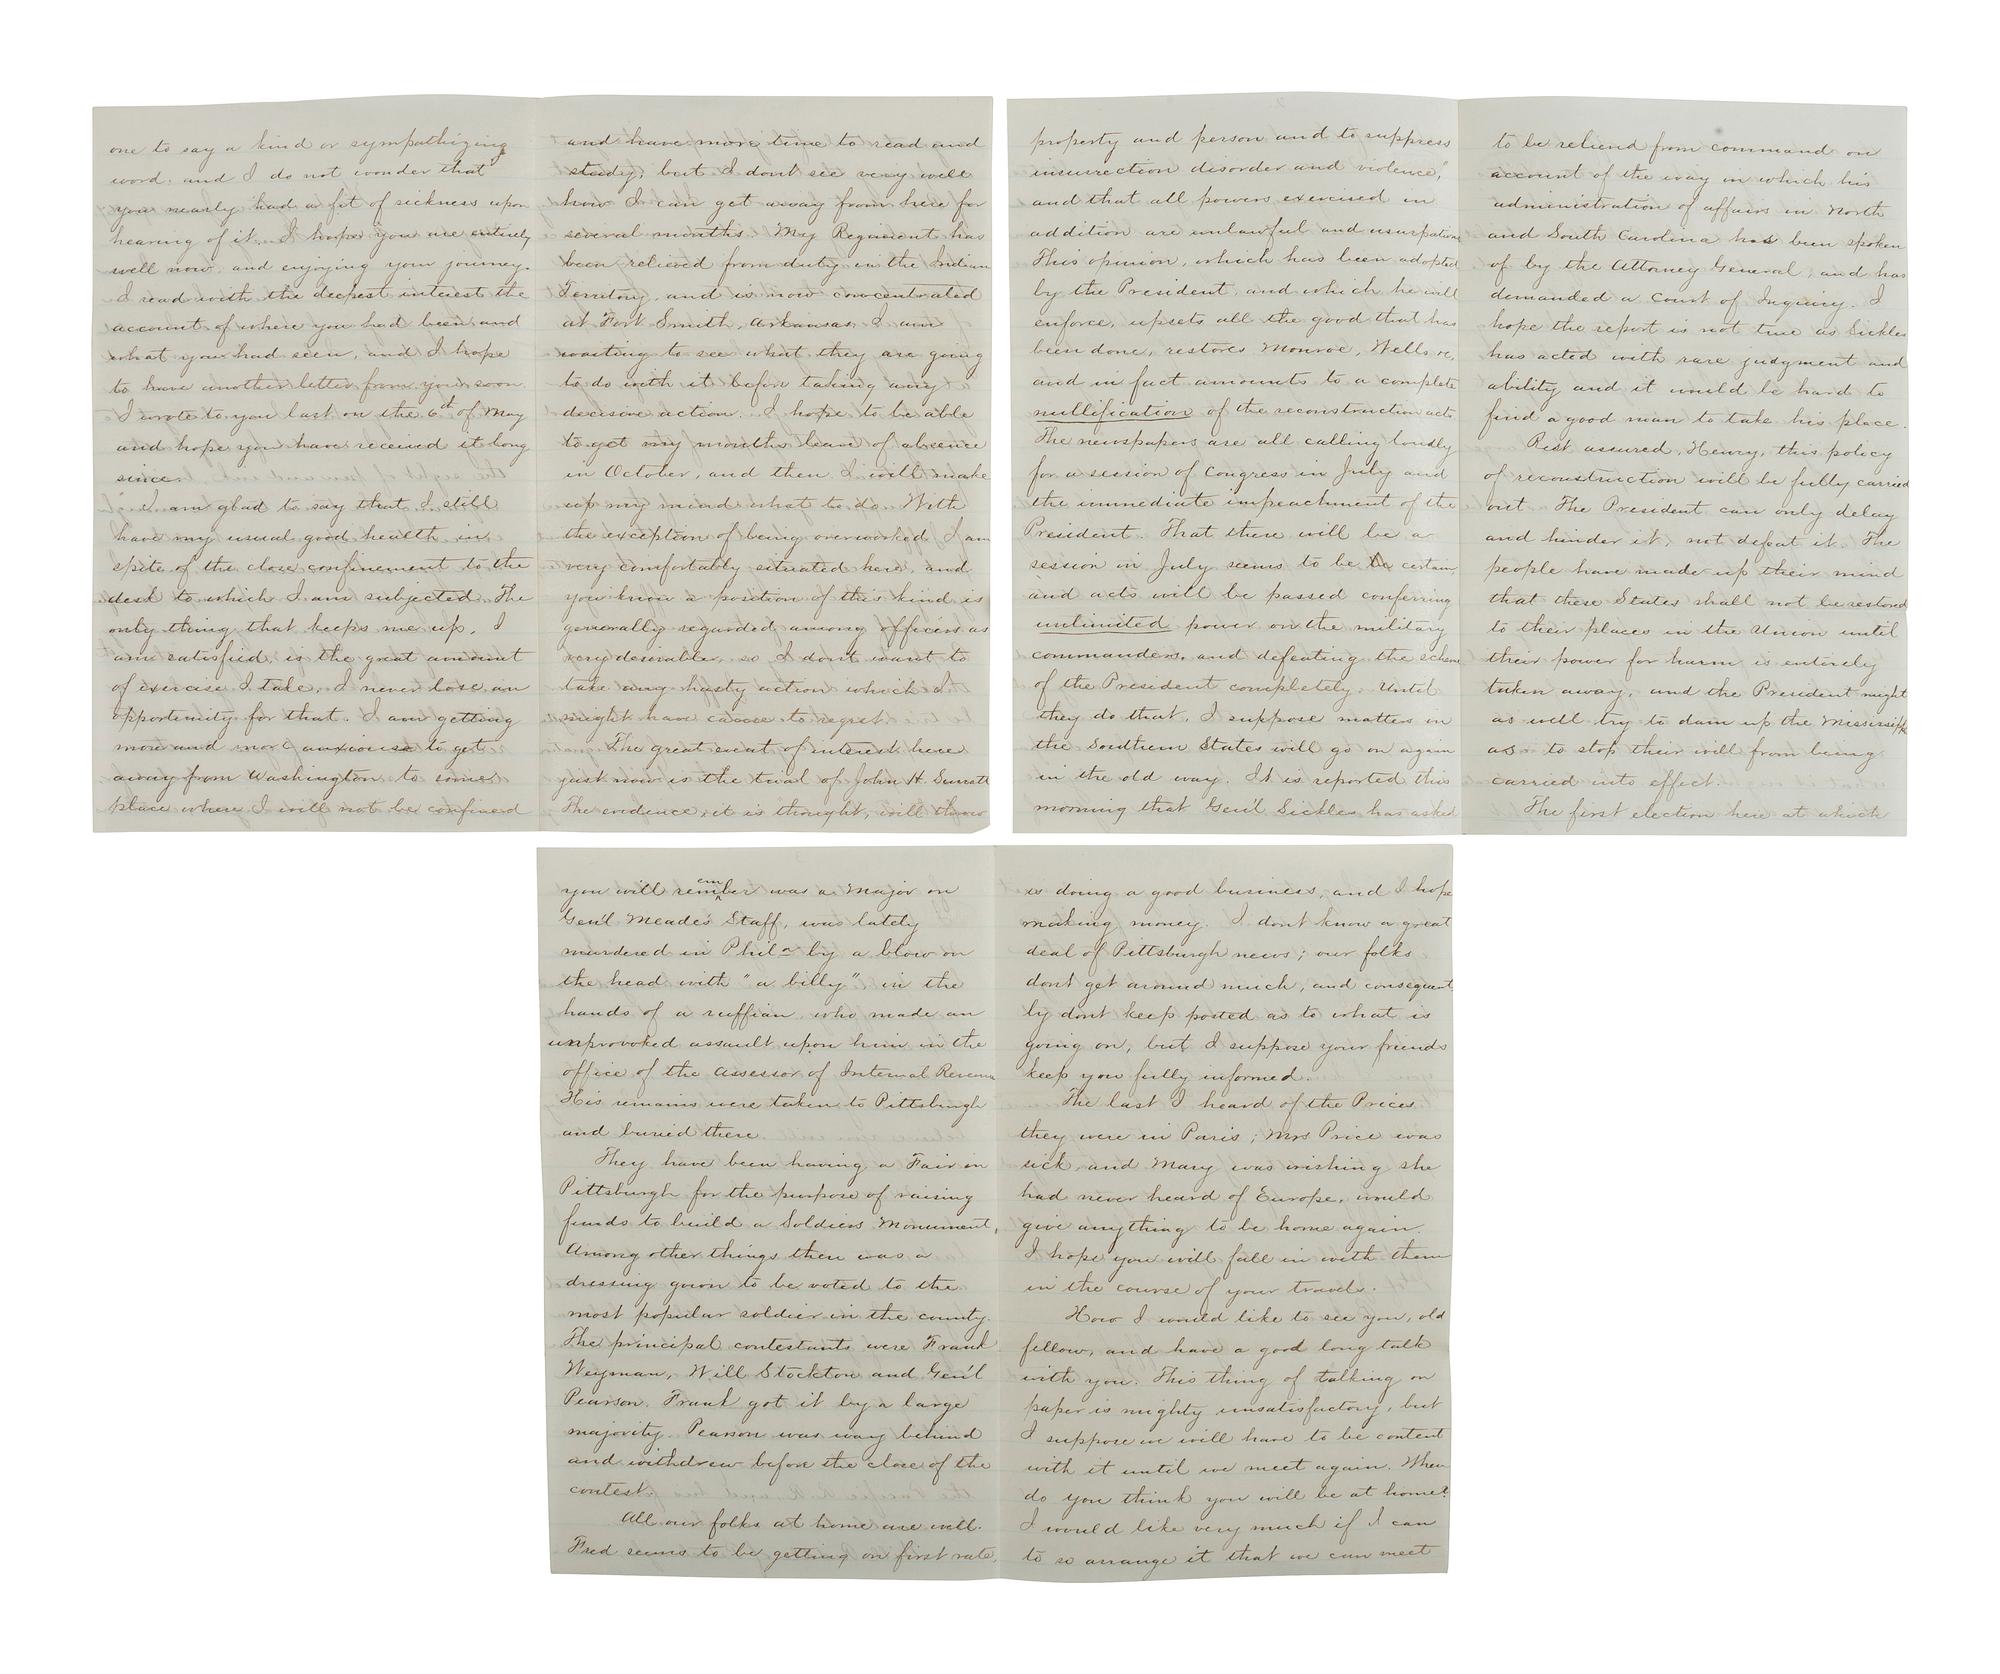 one to say a kind or sympathizing
word, and I do not wonder that
you nearly had a fit of sickness upon
hearing of it. I hope you are entirely
well now, and enjoying your journey.
I read with the deepest interest the
account of where you had been and
what you had seen, and I hope
to have another letter from you soon.
I wrote to you last on the 6th of May
and hope you have received it long
since.
I am glad to say that I still
have my usual good health in
spite of the close confinement to the
desk to which I am subjected. The
only thing that keeps me up, I
am satisfied, is the great amount
of exercise I take, I never lose an
opportunity for that. I am getting
more and more anxious to get
away from Washington to some
place where I will not be confined
and have more time to read and
study, but I dont see very well
how I can get away from here for
several months. My Regiment has
been relieved from duty in the Indian
Territory, and is now concentrated
at Fort Smith, Arkansas. I am
waiting to see what they are going
to do with it before taking any
decisive action. I hope to be able
to get my months leave of absence
in October, and then I will make
up my mind what to do. With
the exception of being overworked I am
very comfortably situated here, and
you know a position of this kind is
generally regarded among officers as
very desirable, so I dont want to
take any hasty action which I
might have cause to regret.
The great event of interest here
just now is the trial of John H. Surratt
The evidence, it is thought, will throw
property and person and to suppress
insurrection disorder and violence,"
and that all powers exercised in
addition are unlawful and usurpations
This opinion, which has been adopted
by the President, and which he will
enforce, upsets all the good that has
been done, restores Monroe, Wells &c,
and in fact amounts to a complete
nullification of the reconstruction acts.
The newspapers are all calling loudly
for a session of Congress in July and
the immediate impeachment of the
President. That there will be a
session in July seems to be certain,
and acts will be passed conferring
unlimited power on the military
commanders, and defeating the scheme
of the President completely. Until
they do that, I suppose matters in
the Southern States will go on again
in the old way. It is reported this
morning that Gen'l Sickles has asked
to be relieved from command on
account of the way in which his
administration of affairs in North
and South Carolina has been spoken
of by the Attorney General, and has
demanded a Court of Inquiry. I
hope the report is not true as Sickles
has acted with rare judgment and
ability and it would be hard to
find a good man to take his place.
Rest assured, Henry, this policy
of reconstruction will be fully carried
out. The President can only delay
and hinder it, not defeat it. The
people have made up their mind
that these States shall not be restored
to their places in the Union until
their power for harm is entirely
taken away, and the President might
as well try to dam up the Mississippi
as to stop their will from being
carried into effect.
The first election here at which
you will remember was a Major on
Gen'l Meade's Staff, was lately
murdered in Phila by a blow on
the head with "a billy" in the
hands of a ruffian who made an
unprovoked assault upon him in the
office of the Assessor of Internal Revenue
His remains were taken to Pittsburgh
and buried there.
They have been having a Fair in
Pittsburgh for the purpose of raising
funds to build a Soldiers Monument,
Among other things there was a
dressing gown to be voted to the
most popular soldier in the county.
The principal contestants were Frank
Weyman, Will Stockton and Gen'l
Pearson. Frank got it by a large
majority. Pearson was way behind
and withdrew before the close of the
contest.
All our folks at home are well.
Fred seems to be getting on first rate,
is doing a good business, and I hope
making money. I dont know a great
deal of Pittsburgh news; our folks
dont get around much, and consequent
ly dont keep posted as to what is
going on, but I suppose your friends
keep you fully informed.
The last I heard of the Prices
they were in Paris; Mrs Price was
sick, and Mary was wishing she
had never heard of Europe, would
give anything to be home again.
I hope you will fall in with them
in the course of your travels.
How I would like to see you, old
fellow, and have a good long talk
with you. This thing of talking on
paper is mighty unsatisfactory, but
I suppose we will have to be content
with it until we meet again. When
do you think you will be at home?
I would like very much if I can
to so arrange it that we can meet